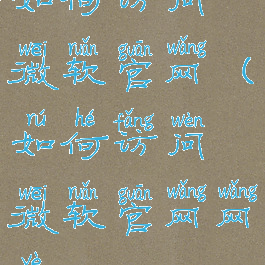 如何访问
wēi ruǎn guān wǎng
微软官网（
rú hé fǎng wèn
如何访问
wēi ruǎn guān wǎng wǎng
微软官网网
yè